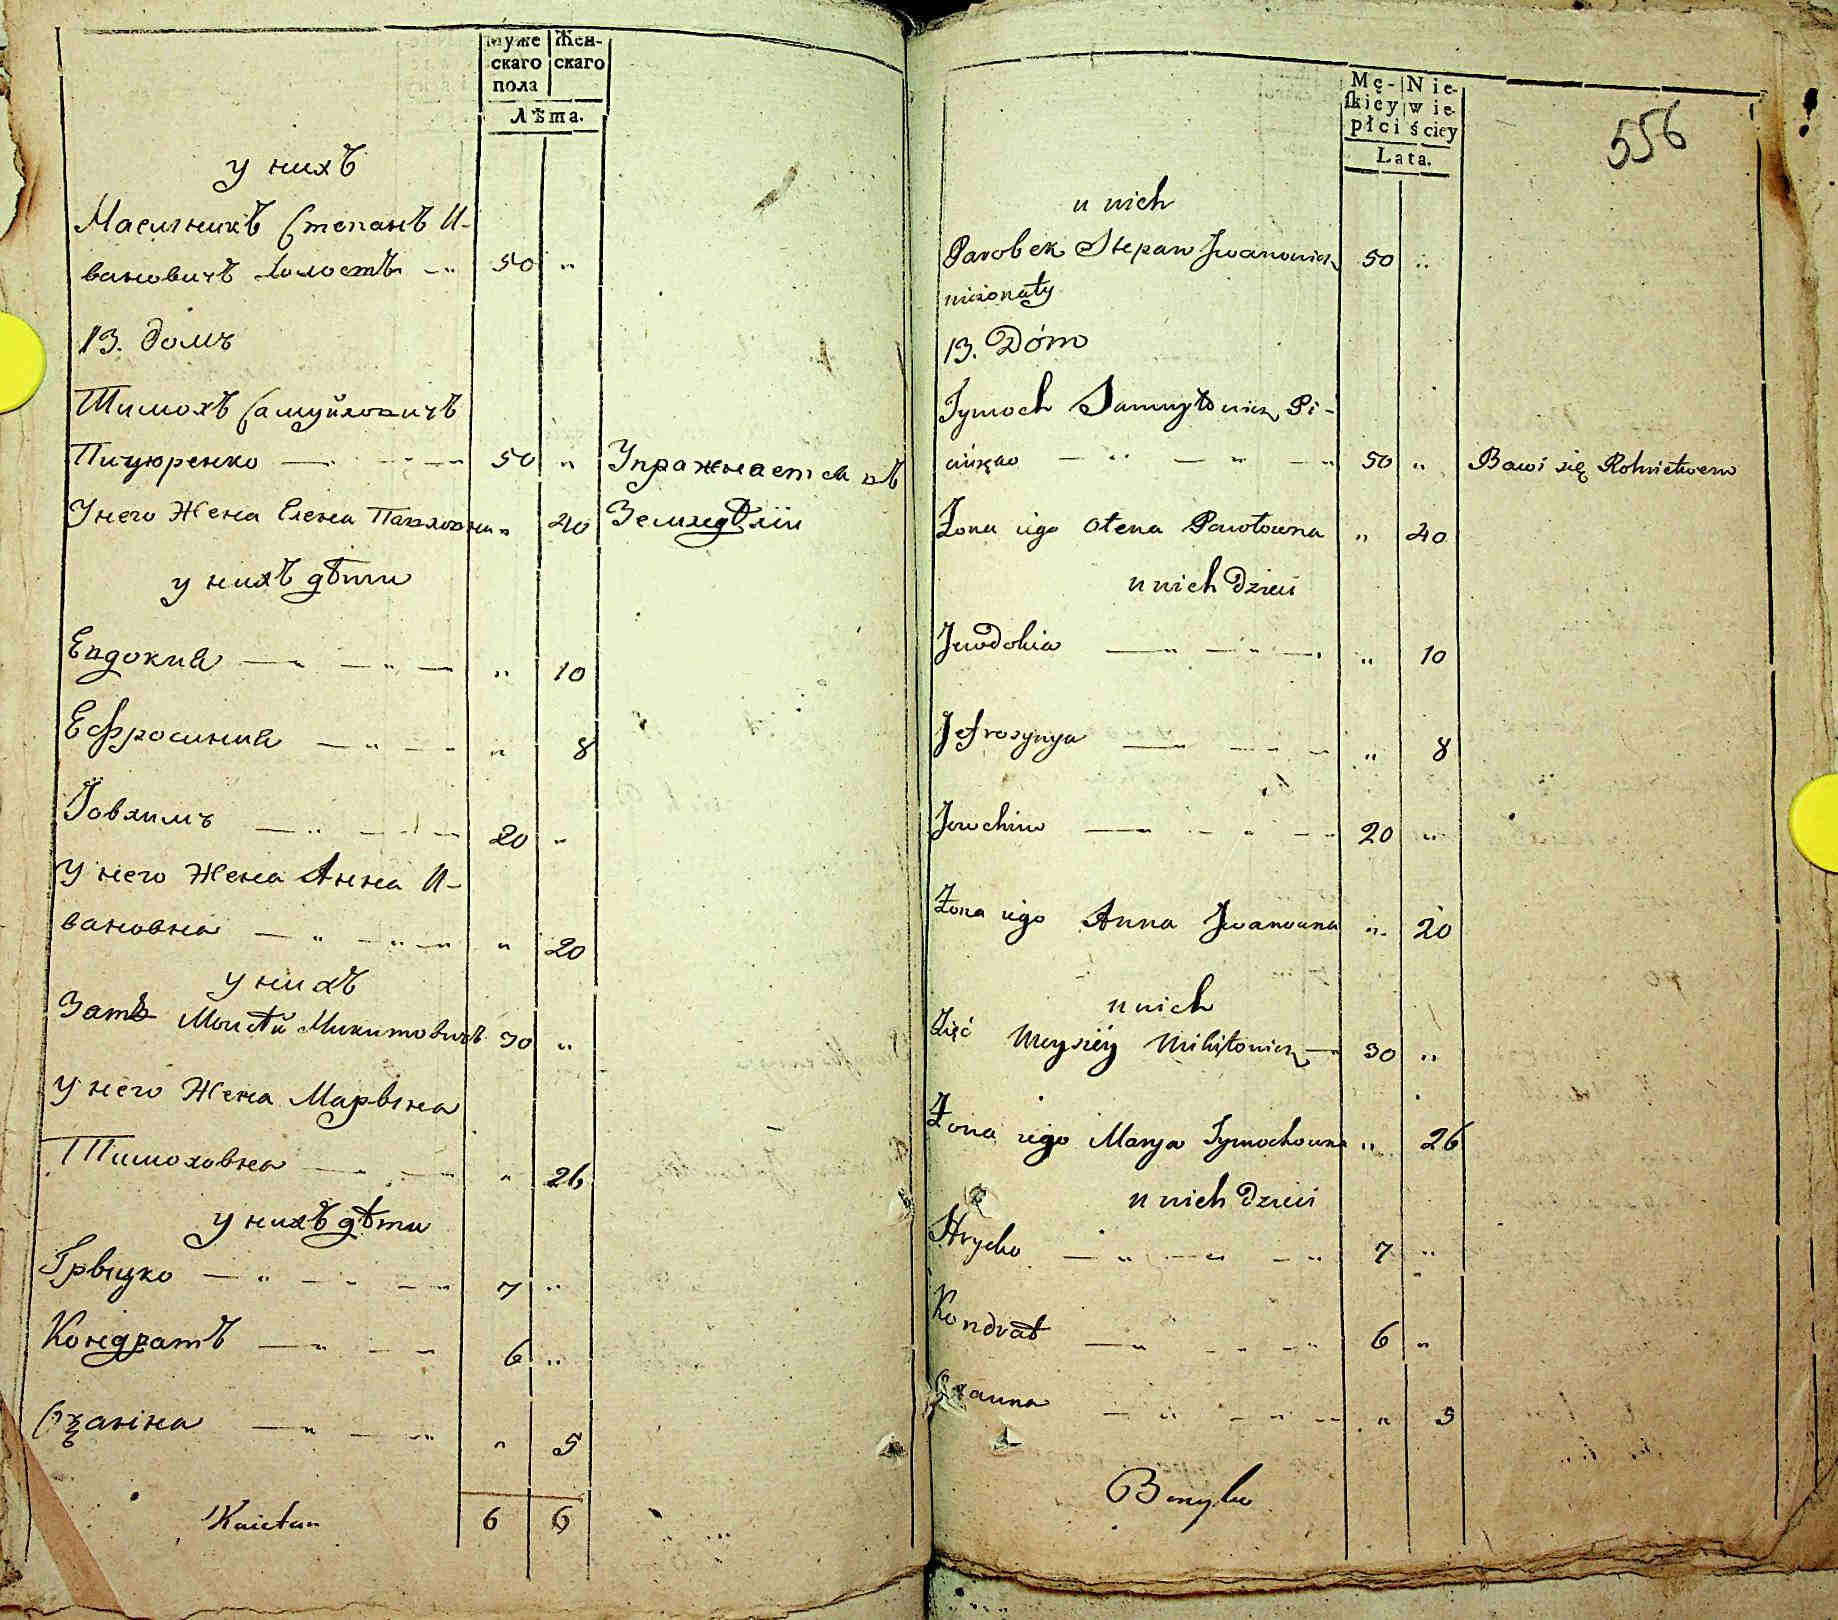 Муже Жен-
скаго скаго
пола
Лѣта.
у нихъ
Масишникъ Степанъ И-
вановичъ холостъ — " 50 "
13. домъ
Тимохъ Самуйловичъ
Пицюренко — " — " — 50 " Упражнается въ
У него Жена Елена Павловна " 40 Земледѣлiи
у нихъ дѣти
Евдокия — " — " — " 10
Ефросиния — " — " — " 8
Іовхимъ — " — " — 20 "
У него Жена Анна И-
вановна — " — " — " 20
у нихъ
Зать Моисѣй Микитовичъ 30 "
У него Жена Марьяна
Тимоховна — " — " 26
у нихъ дѣти
Грыцко — " — " — 7 "
Кондратъ — " — " 6 "
— " — " " 5
Kaietan 6 6
Mę- Nie-
ſkiey wie-
płci ściey
Lata.
556
u nich
Parobek Stepan Jwanowicz 50 "
nieżonaty
13. Dóm
Tymoch Samuyłowicz Pi-
— " — " — " 50 " Bawi się Rolnictwem
Żona iego Ołena Pawłowna " 40
u nich Dzieci
Jewdokia — " — " — " 10
Jefrosynya — " — " — " 8
Jowchim — " — " — 20 "
Żona iego Anna Jwanowna " 20
u nich
Zięć Moysiéy Mikitowicz — 30 "
Żona iego Marya Tymochowna " 26
u nich Dzieci
Hryćko — " — " — " 7 "
Kondrat — " — " 6 "
— " — " — " 5